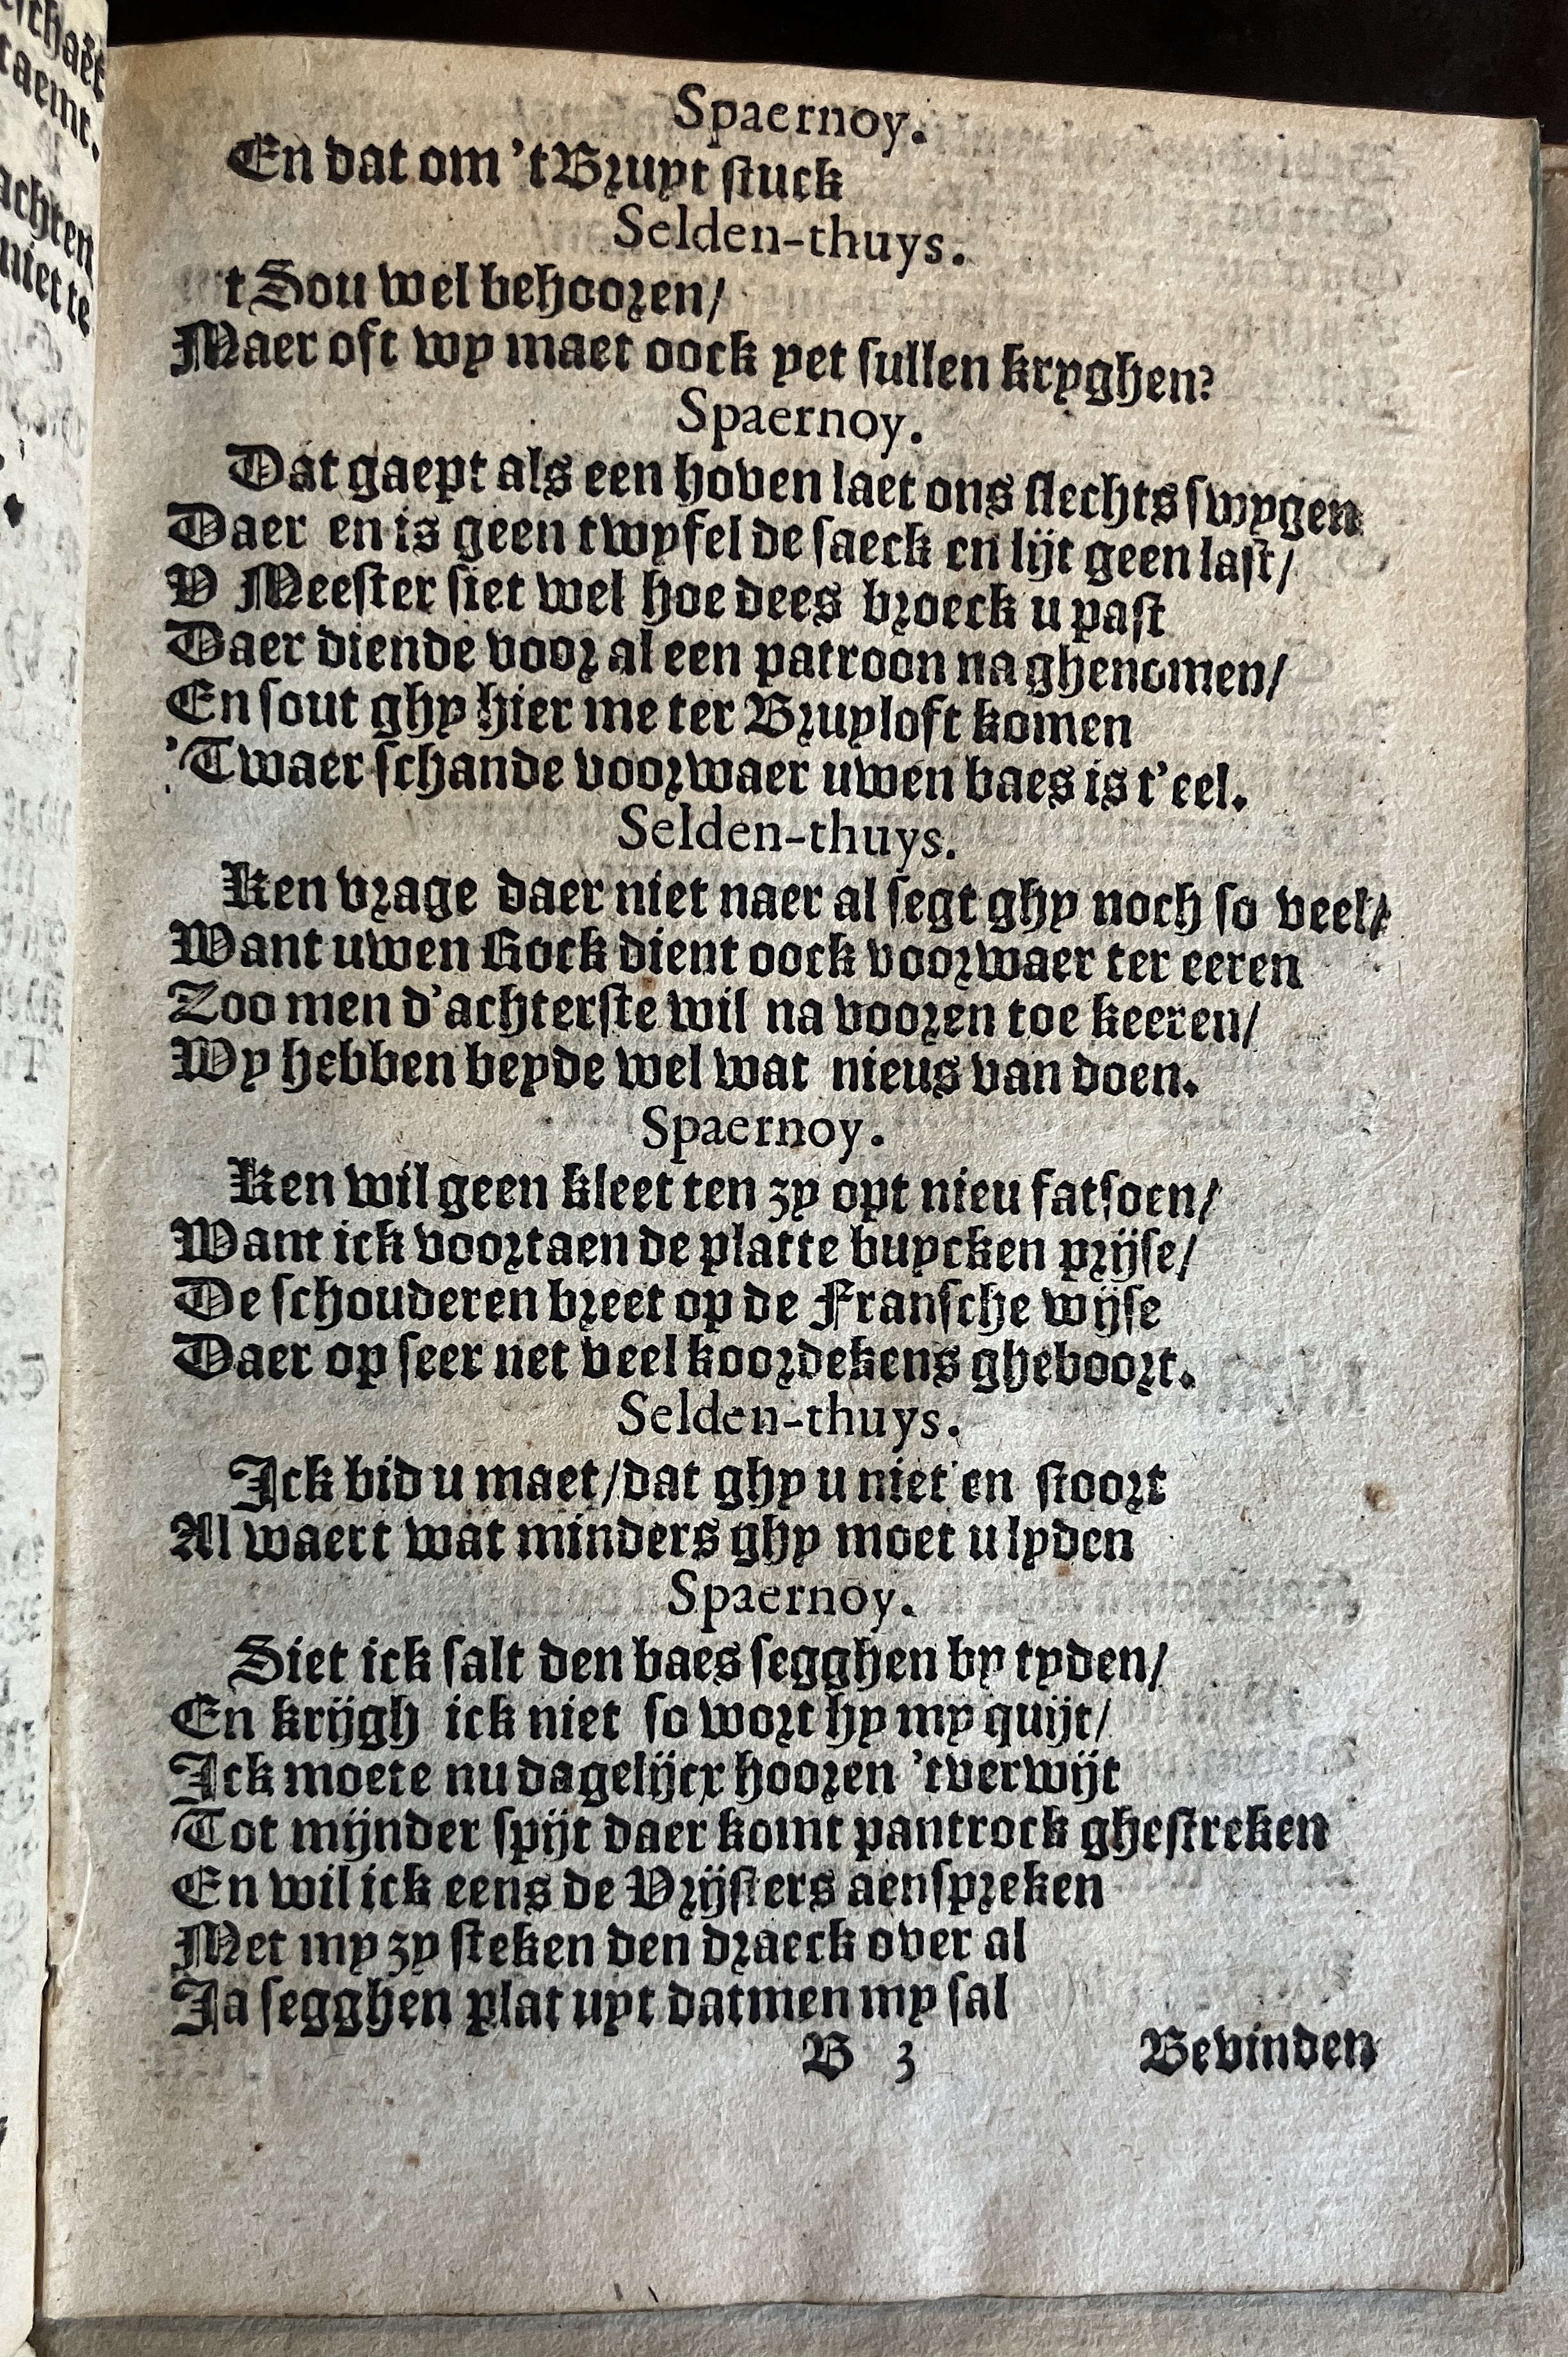 Spaernoy.
En dat om 't Bruyt stuck
Selden-thuys.
t Sou wel behooren/
Maer oft wy maet oock yet sullen kryghen?
Spaernoy.
Dat gaept als een hoven laet ons slechts swygen
Daer en is geen twyfel de saeck en lijt geen last/
V Meester siet wel hoe dees broeck u past
Daer diende voor al een patroon na ghenomen/
En sout ghy hier me ter Bruyloft komen
'Twaer schande voorwaer uwen baes is t'eel.
Selden-thuys.
Ken vrage daer niet naer al segt ghy noch so veel/
Want uwen Rock dient oock voorwaer ter eeren
Zoo men d'achterste wil na vooren toe keeren/
Wy hebben beyde wel wat nieus van doen.
Spaernoy.
Ken wil geen kleet ten zy opt nieu fatsoen/
Want ick voortaen de platte buycken prijse/
De schouderen breet op de Fransche wijse
Daer op seer net veel koordekens gheboort.
Selden-thuys.
Ick bid u maet/dat ghy u niet en stoort
Al waert wat minders ghy moet u lyden
Spaernoy.
Siet ick salt den baes segghen by tyden/
En krijgh ick niet so wort hy my quijt/
Ick moete nu dagelijcx hooren 'tverwijt
Tot mijnder spijt daer komt pantrock ghestreken
En wil ick eens de Vrijsters aenspreken
Met my zy steken den draeck over al
Ja segghen plat uyt datmen my sal
B 3 Bevinden